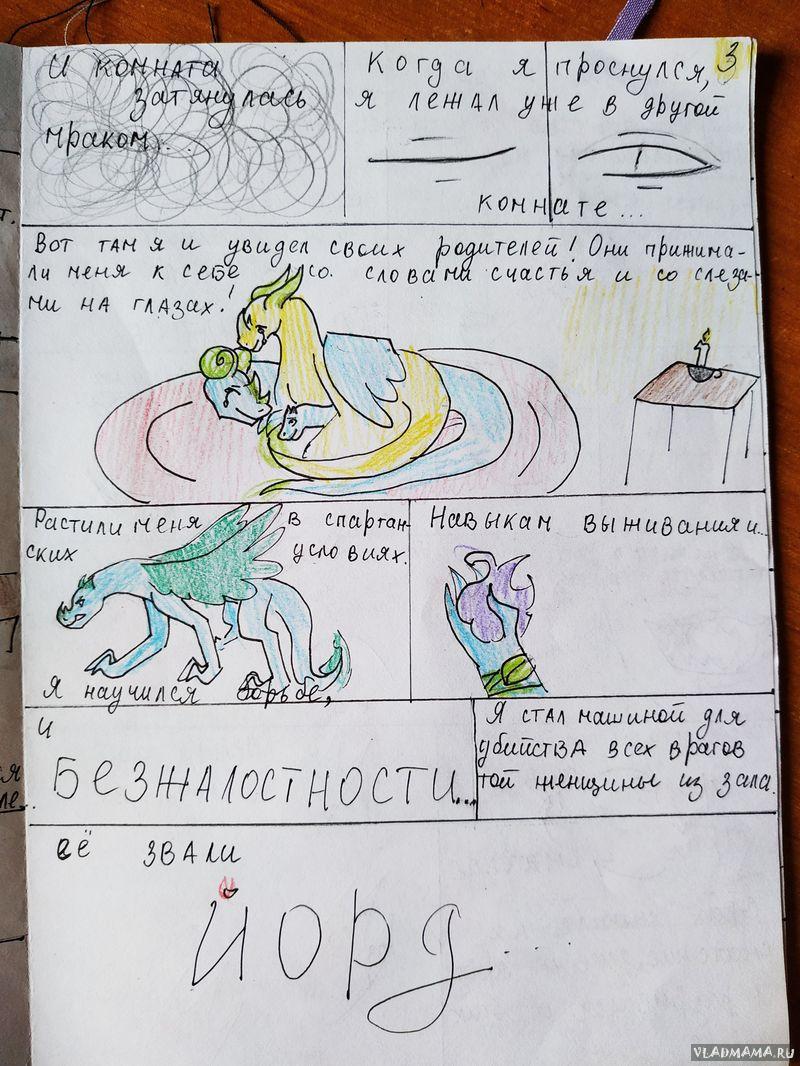 И комната
затянулась
мраком...
Когда я проснулся,
я лежал уже в другой
комнате...
3
Вот там я и увидел своих родителей! Они прижима-
ли меня к себе со словами счастья и со слеза-
ми на глазах!
Растили меня в спартан-
ских условиях.
Я научился борьбе,
Навыкам выживания и...
и
БЕЗЖАЛОСТНОСТИ...
Я стал машиной для
убийства всех врагов
той женщины из зала.
её звали
Йорд...
VLADMAMA.RU